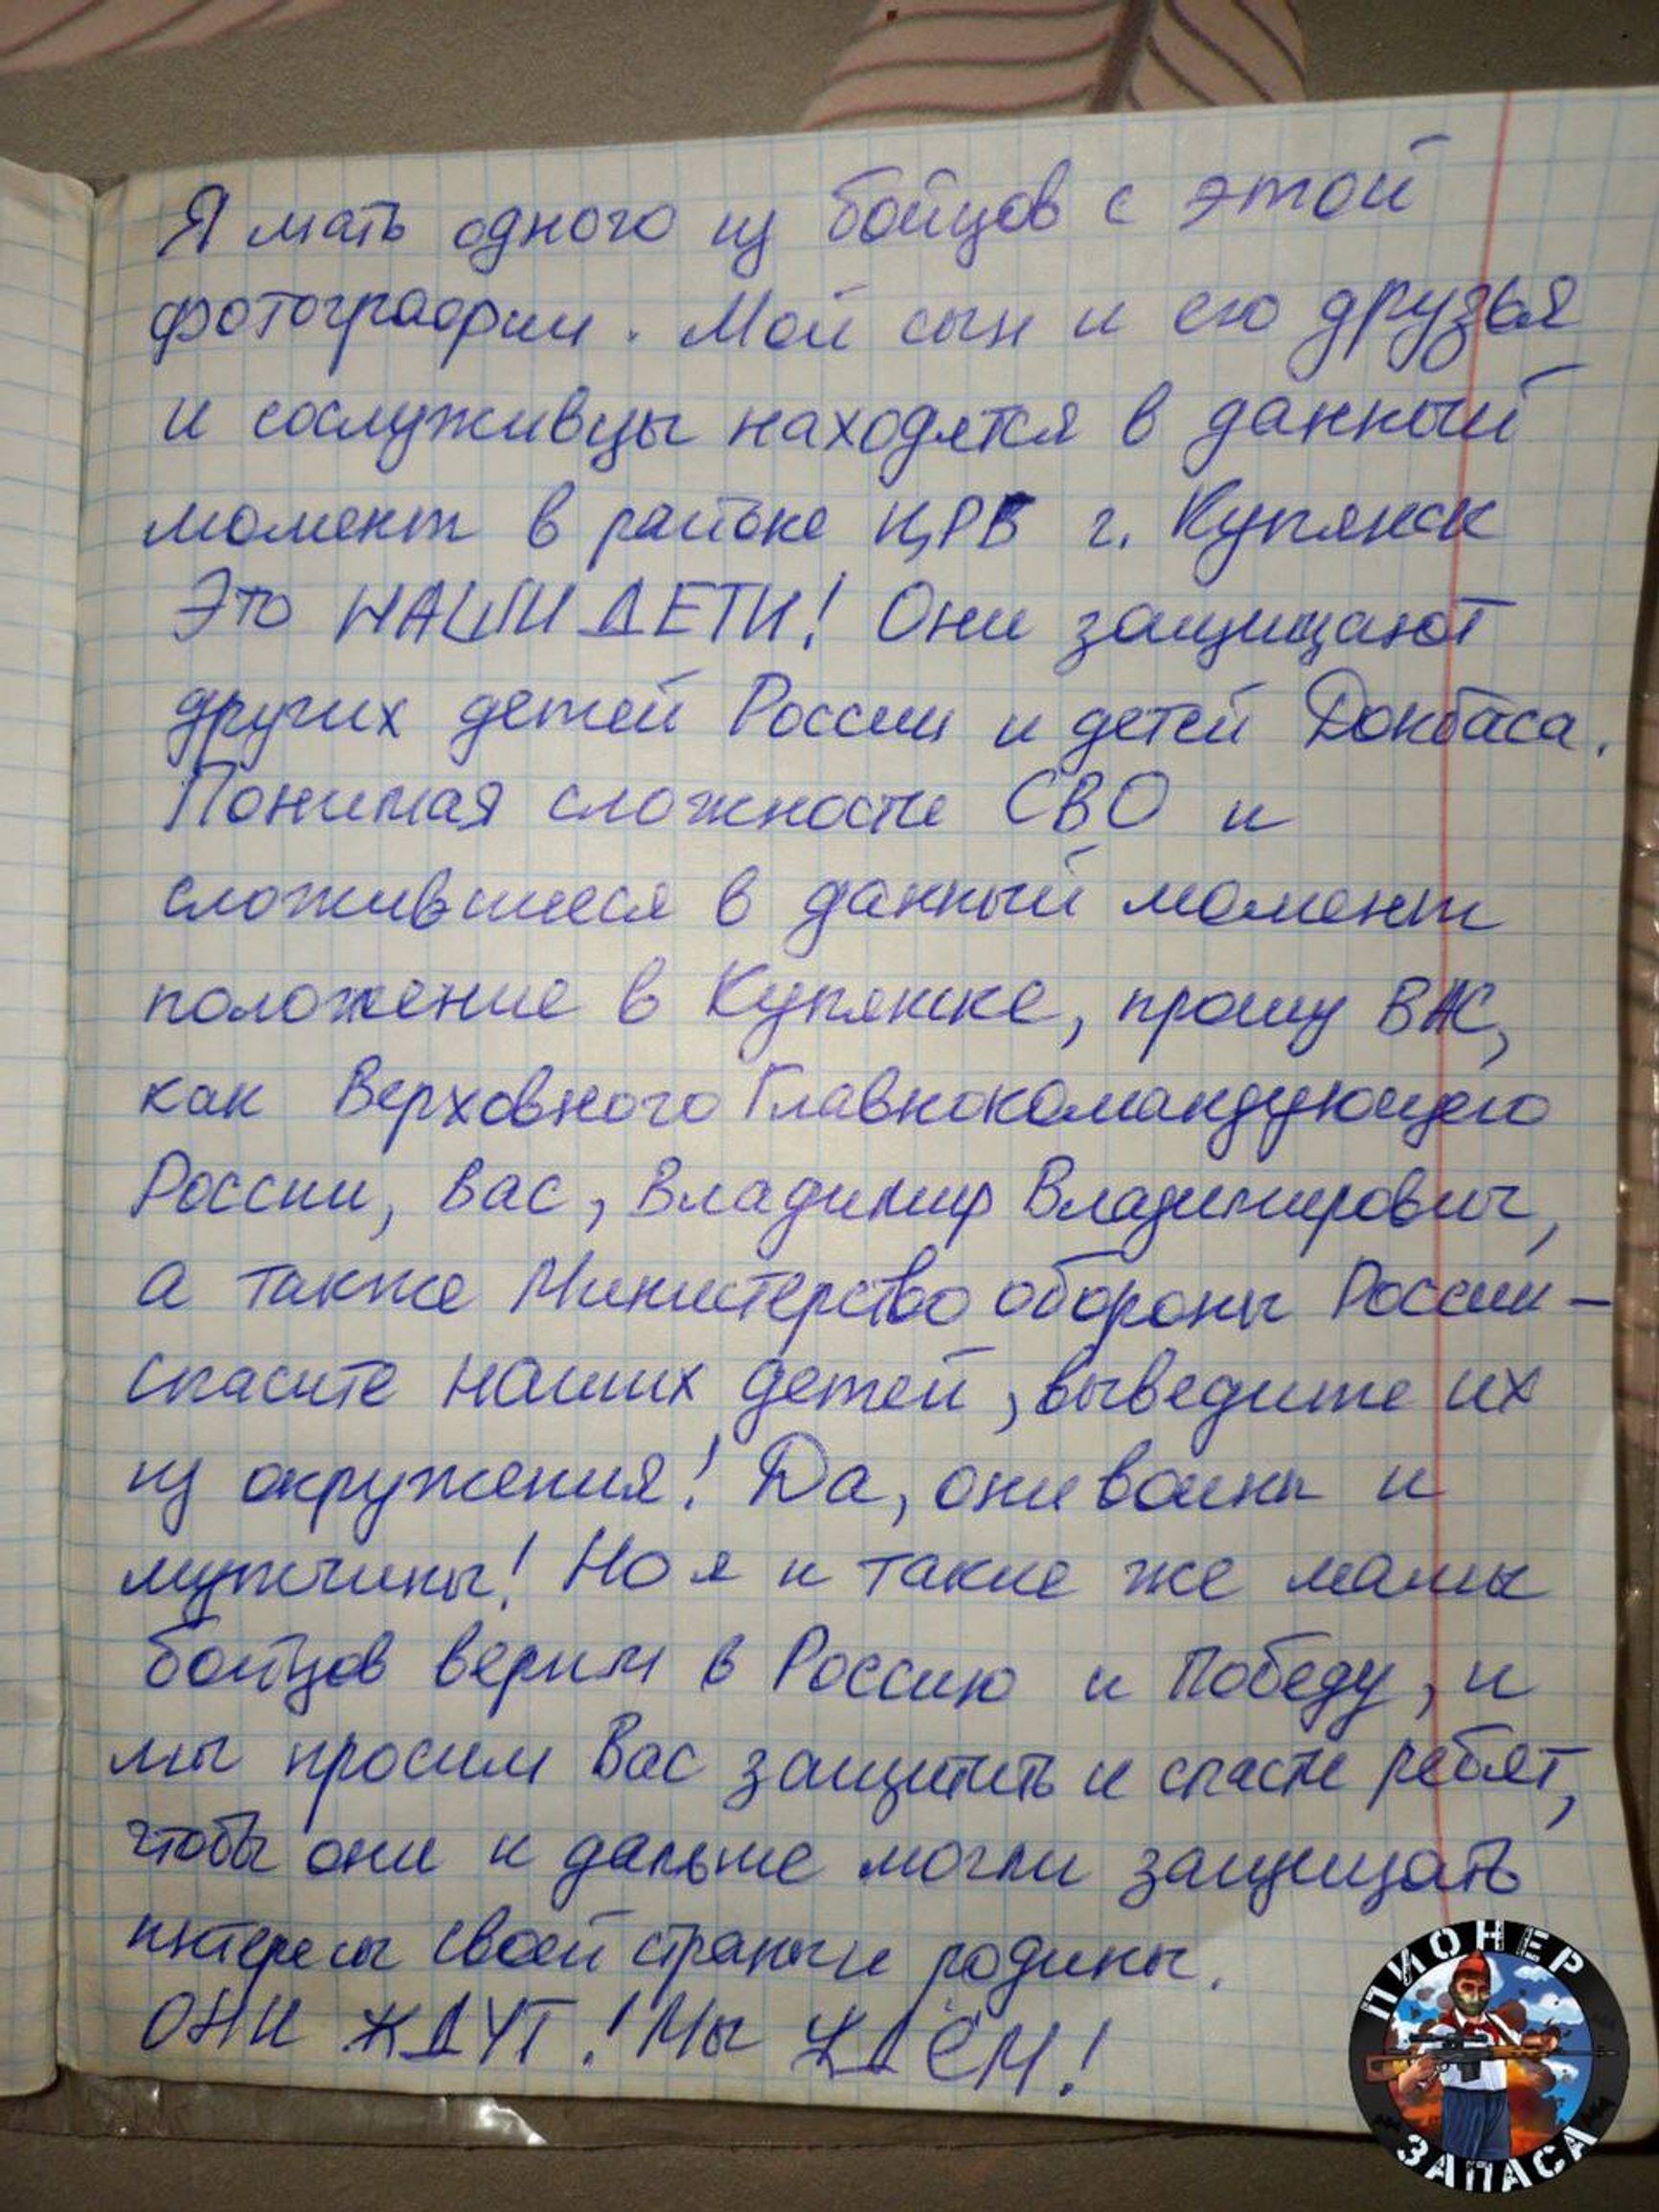 Я мать одного из бойцов с этой
фотографии. Мой сын и его друзья
и сослуживцы находятся в данный
момент в районе ЦРБ г. Купянск
Это НАШИ ДЕТИ! Они защищают
других детей России и детей Донбаса.
Понимая сложности СВО и
сложившееся в данный момент
положение в Купянске, прошу ВАС,
как Верховного Главнокомандующего
России, Вас, Владимир Владимирович,
а также Министерство обороны России –
спасите наших детей, выведите их
из окружения! Да, они воины и
мужчины! Но я и такие же мамы
бойцов верим в Россию и Победу, и
мы просим Вас защитить и спасти ребят,
чтобы они и дальше могли защищать
интересы своей страны и родины.
ОНИ ЖДУТ! Мы ЖДЁМ!
ПИОНЕР
ЗАПАСА